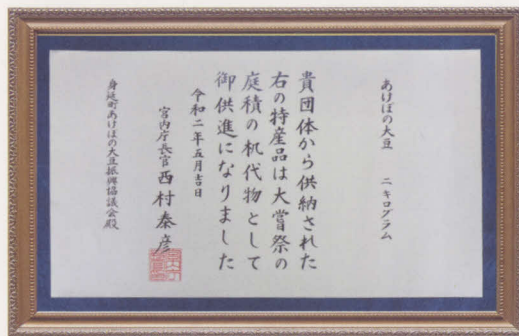 あけぼの大豆　二キログラム
貴団体から供納された
右の特産品は大嘗祭の
庭積の机代物として
御供進になりました
令和二年五月吉日
宮内庁長官 西村泰彦
身延町あけぼの大豆振興協議会殿